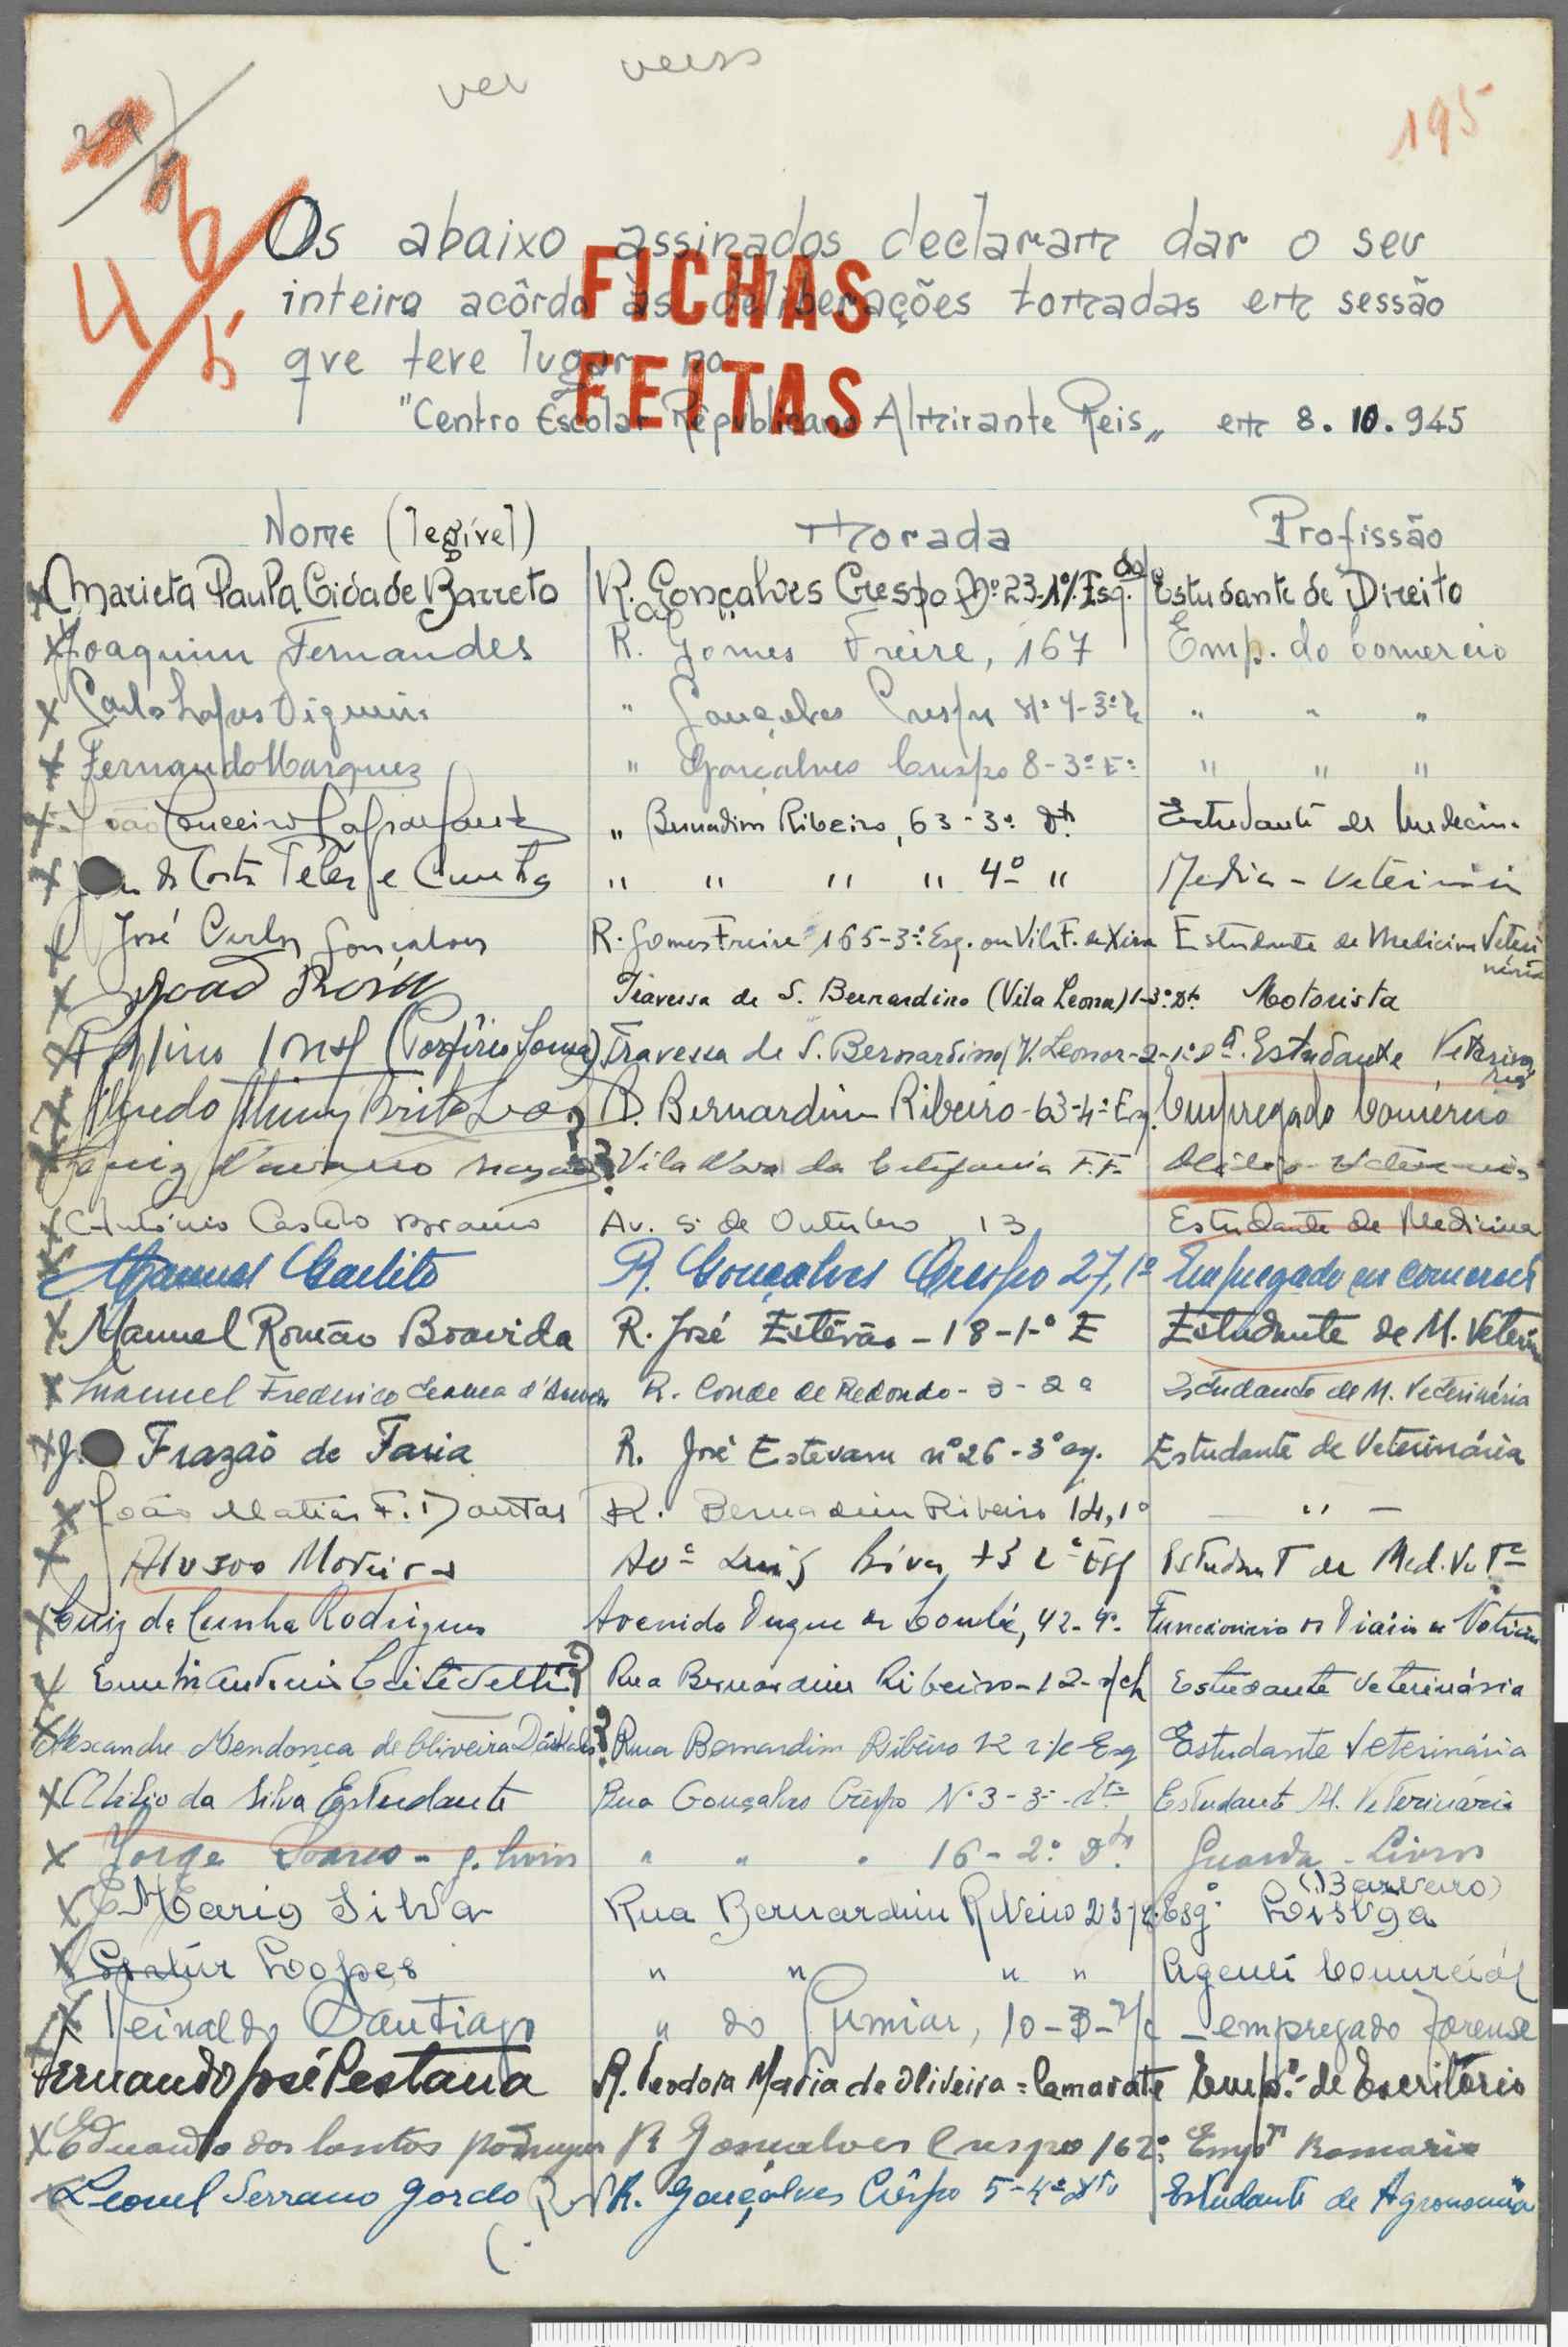 ver verso
195
29
4/5
Os abaixo assinados declaram dar o seu
inteiro acôrdo às deliberações tomadas em sessão
que teve lugar no
"Centro Escolar Republicano Almirante Reis„ em 8.10.945
FICHAS
FEITAS
Nome (legível) Morada Profissão
Marieta Paula Cidade Barreto R. Gonçalves Crespo Nº 23-1º Esq. Estudante de Direito
Joaquim Fernandes R. Gomes Freire, 167 Emp. do Comercio
Carlos Lopes " Gonçalves Crespo Nº 4-3º " " "
Fernando Marques " Gonçalves Crespo 8-3º Eº " " "
João Conceiro „ Bernadim Ribeiro, 63-3º Dt. Estudante de Medicina
da Costa Teles e Cunha " " " " 4º " Medico-Veterinário
José Carlos Gonçalves R. Gomes Freire 165-3º Esq. ou Vila F. de Xira Estudante de Medicina Veterinária
João Rosa Travessa de S. Bernardino (Vila Leonor) 1-3º Dt. Motorista
(Porfírio Sousa) Travessa de S. Bernardino V. Leonor-2-1º Estudante Veterinária
Alfredo Brito R. Bernardim Ribeiro-63-4º Esq. Empregado Comércio
Luiz ? Vila Nova da Estefania F.F. Médico-Veterinário
António Castelo Branco Av. 5 de Outubro 13 Estudante de Medicina
Manuel R. Gonçalves Crespo 27,1º Empregado no comercio
Manuel Romão Boavida R. José Estêvão-18-1º E Estudante de M. Veterin
Manuel Frederico R. Conde de Redondo-3-2º Estudante de M. Veterinária
J. Frazão de Faria R. José Estevam nº 26-3º esq. Estudante de Veterinária
João Matias F. Dantas R. Bernadim Ribeiro 14,1º — " —
Moreira Avª Luiz Estudant de Med. Vetª
Luiz da Cunha Rodrigues Avenida Duque de Loulé, 42-4º Funcionário do Diário de Notícias
? Rua Bernardim Ribeiro-12-r/ch Estudante Veterinária
Alexandre Mendonça de Oliveira ? Rua Bernardim Ribeiro 12 r/c Esq Estudante Veterinária
Abílio da Silva Estudante Rua Gonçalves Crespo Nº 3-3º-dtº Estudante M. Veterinária
Jorge Soares-g. livros " " " 16-2º Dt. Guarda-Livros
Mario Silva Rua Bernardim Ribeiro 23 Esqº Lisboa (Barbeiro)
Lopes " " " " Agente Comercial
Reinaldo Santiago " do Gumiar, 10-3- empregado forense
Fernando José Pestana R. Teodora Maria de Oliveira = Camarate Empº de Escritório
Eduardo dos Santos Rodrigues R Gonçalves Crespo 16 2º Empº Bancario
Leonel Serrano Gordo R. Gonçalves Crêspo 5-4º dtº Estudante de Agronomia